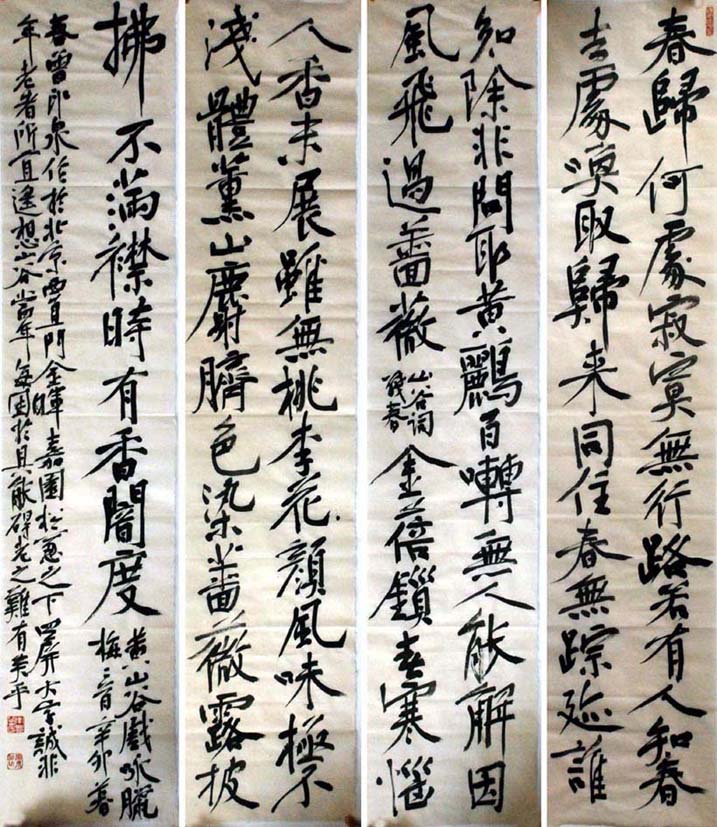 春歸何處寂寞無行路若有人知春
去處喚取歸来同住春無踪迹誰
知除非問取黄鸝百囀無人能解因
風飛過薔薇
山谷词
春
金蓓鎖春寒惱
人香未展雖無桃李花顏風味極不
淺體薰山麝臍色染薔薇露披
拂不滿襟時有香闇度
黄山谷戲咏臘
梅二首辛卯暮
春曾印泉作於北京西直門金暉嘉園松窗之下四屏大字誠非
年老者所宜遙想山谷當年每困於具能之難有类乎